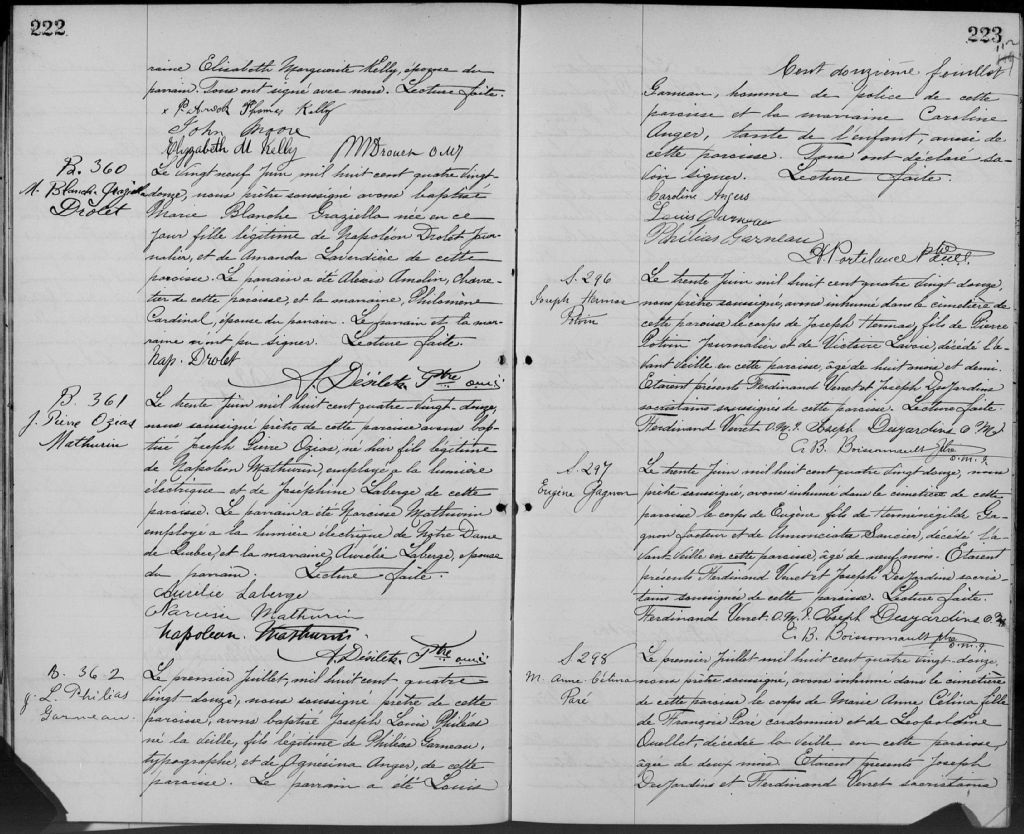 222
raine Elisabeth Marguerite Kelly, épouse du
parrain. Tous ont signé avec nous. Lecture faite.
x Patrick Thomas Kelly
John Moore
Elizabeth M Kelly Drouet O M I
B. 360
M. Blanche Graziella
Drolet
Le vingt neuf Juin mil huit cent quatre vingt
douze, nous prêtre soussigné avons baptisé
Marie Blanche Graziella née en ce
jour fille légitime de Napoléon Drolet jour-
nalier, et de Amanda Laverdière de cette
paroisse. Le parrain a été Alexis Amelin, charre-
tier de cette paroisse, et la marraine, Philomène
Cardinal, épouse du parrain. Le parrain et la mar-
raine n'ont pu signer. Lecture faite.
Nap. Drolet
A. Désilets Ptre o.m.i
B. 361
J. Pierre Ozias
Mathurin
Le trente Juin mil huit cent quatre-vingt-douze,
nous soussigné prêtre de cette paroisse avons bap-
tisé Joseph Pierre Ozias, né hier fils légitime
de Napoléon Mathurin, employé à la lumière
électrique et de Joséphine Laberge de cette
paroisse. Le parrain a été Narcisse Mathurin
employé a la lumière électrique de Notre Dame
de Québec, et la marraine, Aurélie Laberge, épouse
du parrain. Lecture faite.
Aurélie Laberge
Narcisse Mathurin
Napoléon Mathurin.
A. Désilets Ptre o.m.i
B. 362
J. L. Philias
Garneau.
Le premier Juillet, mil huit cent quatre
vingt douze, nous soussigné prêtre de cette
paroisse, avons baptisé Joseph Louis Philias
né la veille, fils légitime de Philias Garneau,
typographe, et de Agnesina Anger, de cette
paroisse. Le parrain a été Louis
223
112
Cent douzième feuillet
Garneau, homme de police de cette
paroisse et la marraine Caroline
Anger, tante de l'enfant, aussi de
cette paroisse. Tous ont déclaré sa-
voir signer. Lecture faite.
Caroline Angers
Louis Garneau
Philias Garneau
Portelance Ptre
S. 296
Joseph Hermas
Potvin
Le trente Juin mil huit cent quatre vingt douze,
nous prêtre soussigné, avons inhumé dans le cimetière de
cette paroisse le corps de Joseph Hermas, fils de Pierre
Potvin Journalier et de Victoire Lavoie, décédé l'a-
vant veille en cette paroisse, âgé de huit mois et demi.
Etaient présents Ferdinand Verret et Joseph Des Jardins
sacristains soussignés de cette paroisse. Lecture faite.
Ferdinand Verret O.M.I. Joseph Desjardins O M I
E. B. Boissonnault Ptre
o.m.i.
S. 297
Eugène Gagnon
Le trente Juin mil huit cent quatre vingt douze, nous
prêtre soussigné, avons inhumé dans le cimetière de cette
paroisse le corps de Eugène fils de Herménégilde Ga-
gnon facteur et de Annonciata Sancier, décédé l'a-
vant veille en cette paroisse, âgé de neuf mois. Etaient
présents Ferdinand Verret et Joseph Des Jardins sacris-
tains soussignés de cette paroisse. Lecture faite.
Ferdinand Verret. O.M.I. Joseph Desjardins O M
E. B. Boissonnault Ptre
o.m.i.
S. 298
M. Anne Célina
Paré
Le premier Juillet mil huit cent quatre vingt douze,
nous prêtre soussigné, avons inhumé dans le cimetière
de cette paroisse le corps de Marie Anne Célina fille
de François Paré cordonnier et de Léopoldine
Ouellet, décédée la veille en cette paroisse,
âgée de deux mois. Etaient présents Joseph
Des Jardins et Ferdinand Verret sacristains